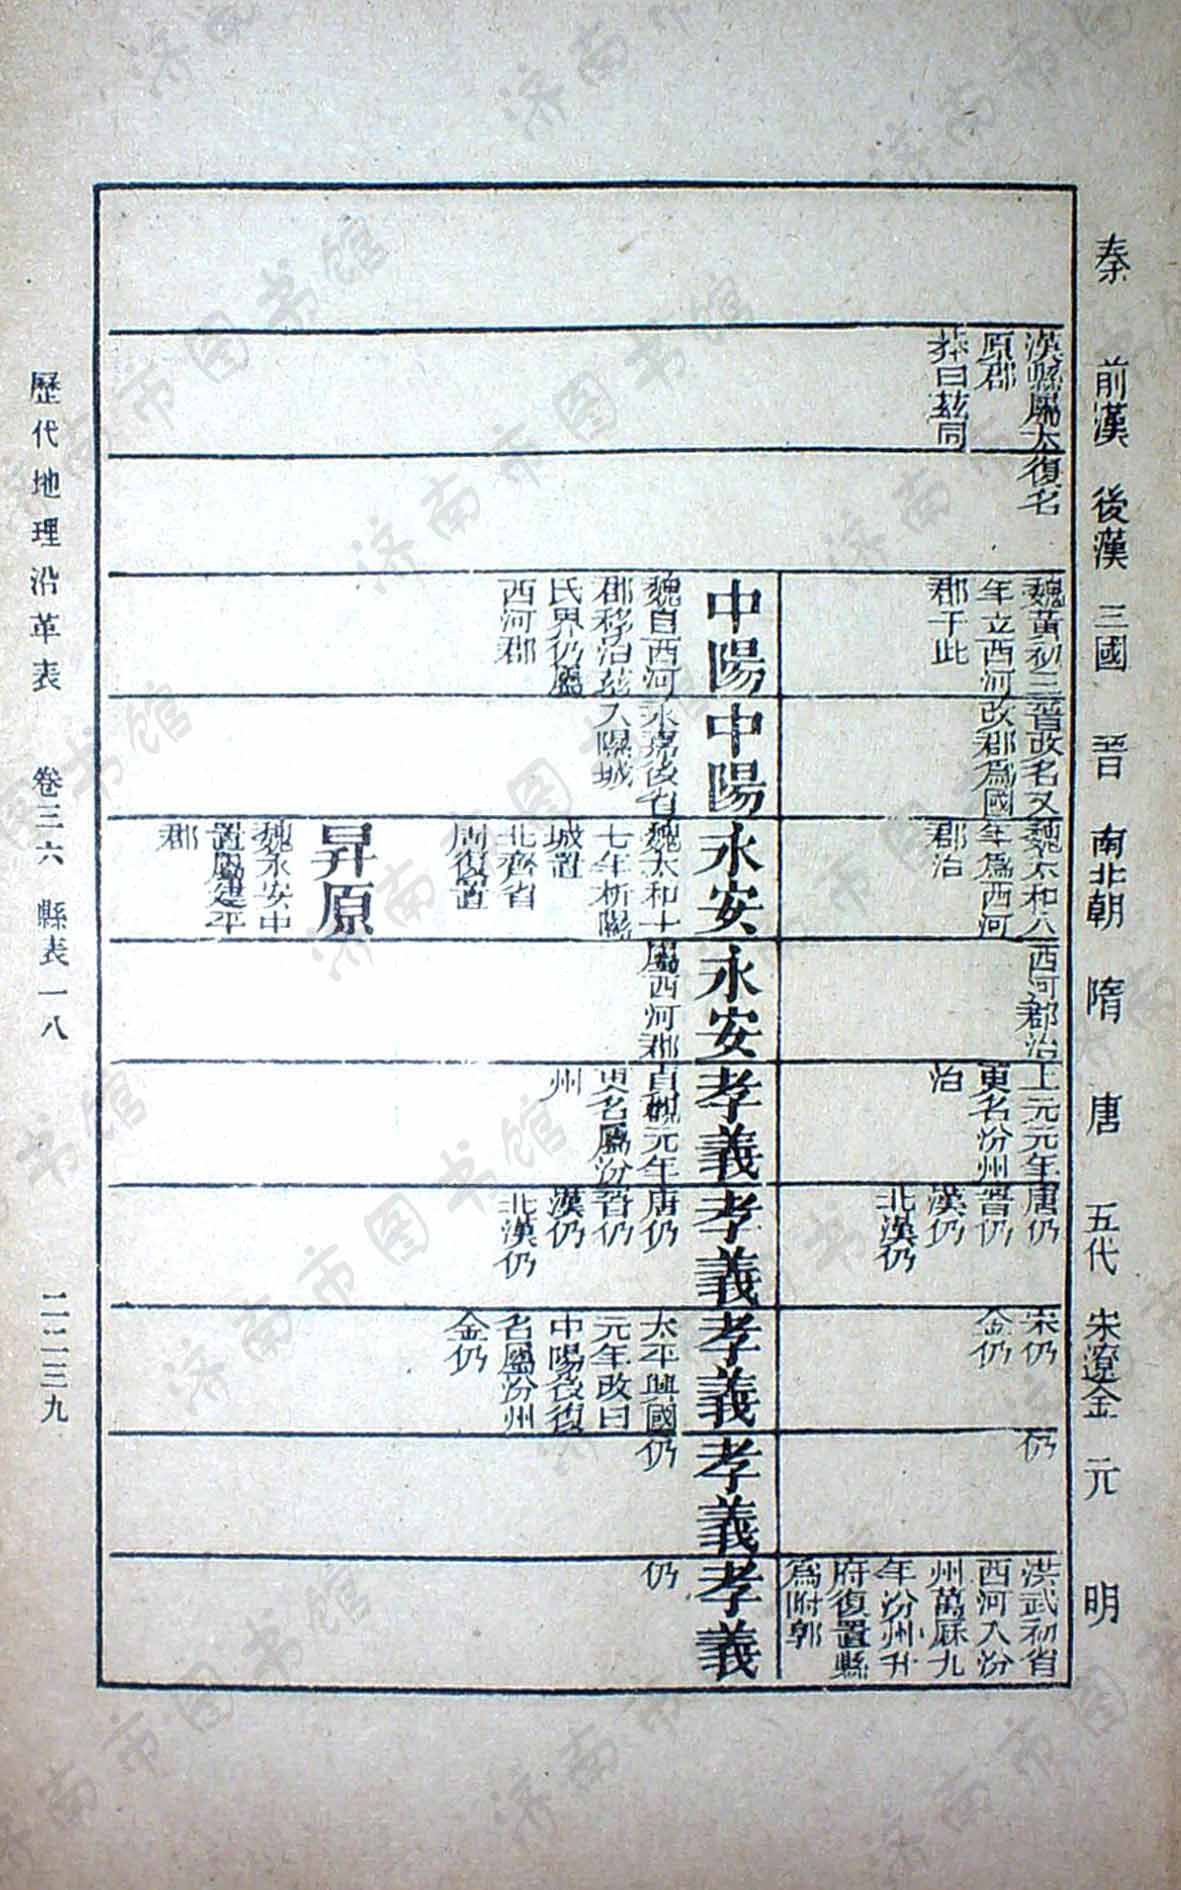 秦 前漢 後漢 三國 晉 南北朝 隋 唐 五代 宋遼金 元 明
漢縣屬太
原郡
莽曰茲同
復名
魏黃初三
年立西河
郡于此
晉改名又
改郡爲國
魏太和八
年爲西河
郡治
西河郡治
上元元年
更名汾州
治
唐仍
晉仍
漢仍
北漢仍
宋仍
金仍
仍
洪武初省
西河入汾
州萬厤九
年汾州升
府復置縣
爲附郭
中陽
魏自西河
郡移治茲
氏界仍屬
西河郡
中陽
永嘉後省
入隰城
永安
魏太和十
七年析隰
城置
北齊省
周復置
昇原
魏永安中
置屬建平
郡
永安
屬西河郡
孝義
貞觀元年
更名屬汾
州
孝義
唐仍
晉仍
漢仍
北漢仍
孝義
太平興國
元年改曰
中陽後復
名屬汾州
金仍
孝義
仍
孝義
仍
歷代地理沿革表 卷三六 縣表一八 二二三九
济南市图书馆